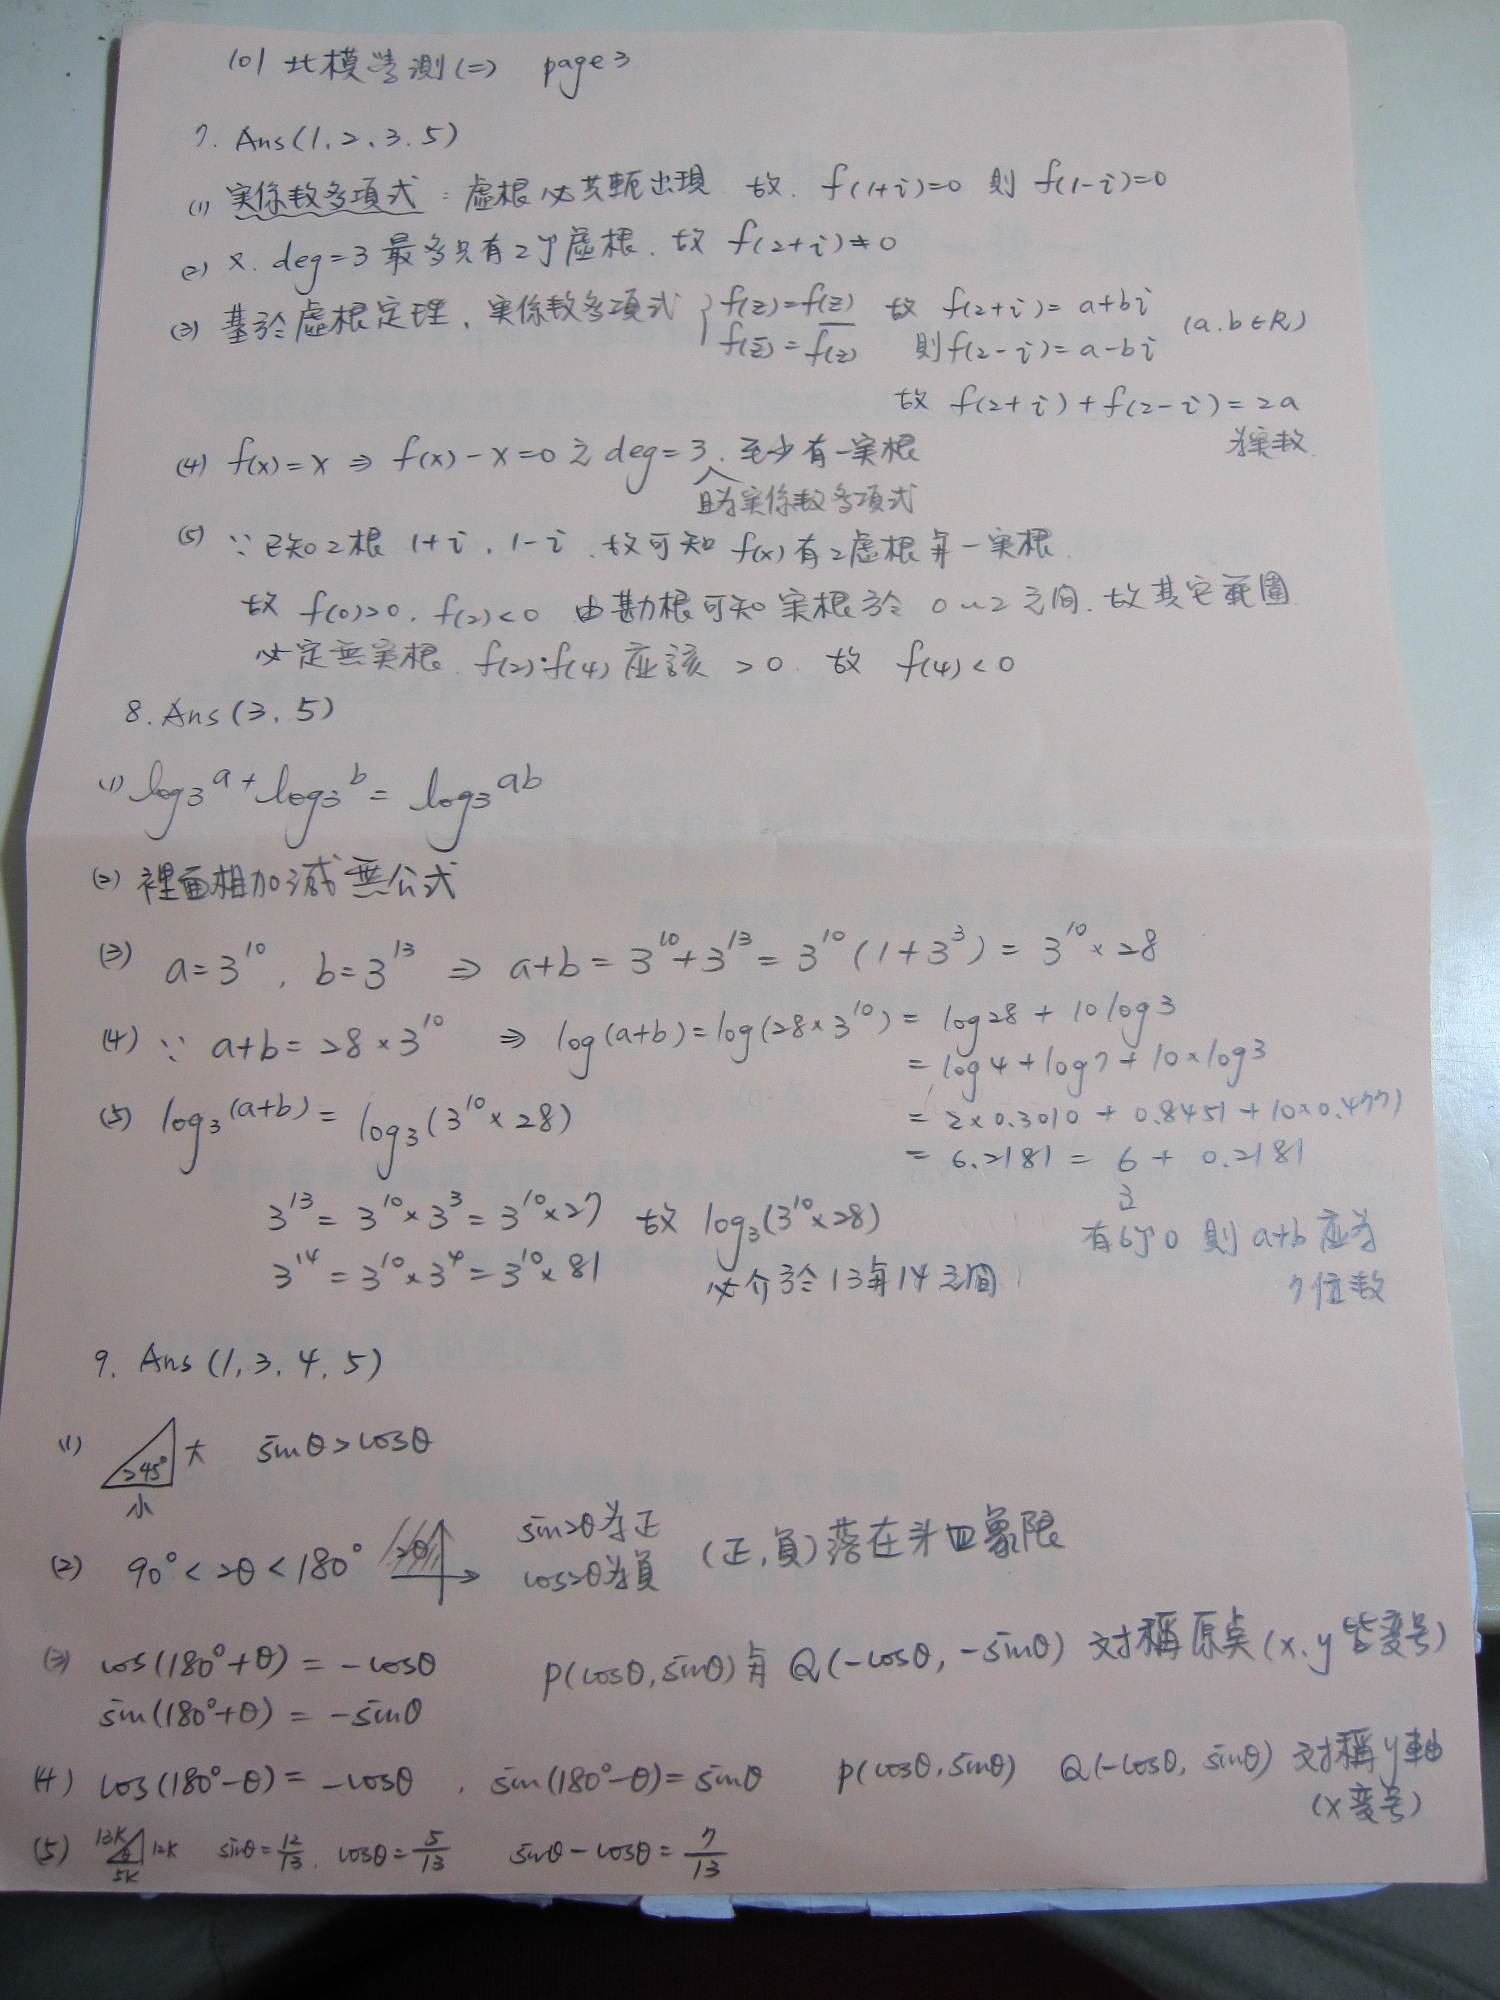 101 北模學測(二) page 3
7. Ans(1.2.3.5)
(1) 実係数多項式:虛根必共軛出現 故. f(1+i)=0 則 f(1-i)=0
(2) x. deg=3 最多只有2个虛根. 故 f(2+i)≠0
(3) 基於虛根定理. 実係数多項式 { f(z)=f(z) 故 f(2+i)=a+bi (a.b∈R)
f(z̄)=\overline{f(z)} 則f(2-i)=a-bi
故 f(2+i)+f(2-i)=2a
為実数.
(4) f(x)=x ⇒ f(x)-x=0 之 deg=3. 至少有一実根
且為実係数多項式
(5) ∵已知2根 1+i, 1-i. 故可知 f(x) 有2虛根與一実根.
故 f(0)>0. f(2)<0 由勘根可知 実根於 0~2之間. 故其它範圍
必定無実根. f(2)·f(4) 应該 >0. 故 f(4)<0
8. Ans(3.5)
(1) log₃a+log₃b=log₃ab
(2) 裡面相加減無公式
(3) a=3¹⁰, b=3¹³ ⇒ a+b=3¹⁰+3¹³=3¹⁰(1+3³)=3¹⁰×28
(4) ∵ a+b=28×3¹⁰ ⇒ log(a+b)=log(28×3¹⁰)=log28+10log3
=log4+log7+10×log3
=2×0.3010+0.8451+10×0.477)
=6.2181=6+0.2181
有6个0 則 a+b 应為
7位数
(5) log₃(a+b)=log₃(3¹⁰×28)
3¹³=3¹⁰×3³=3¹⁰×27 故 log₃(3¹⁰×28)
3¹⁴=3¹⁰×3⁴=3¹⁰×81 必介於13與14之間
9. Ans(1.3.4.5)
(1) >45° 大 小 sinθ>cosθ
(2) 90°<2θ<180° 2θ sin2θ為正 cos2θ為負 (正,負)落在第四象限
(3) cos(180°+θ)=-cosθ P(cosθ,sinθ)與Q(-cosθ,-sinθ) 対稱原点(x.y皆変号)
sin(180°+θ)=-sinθ
(4) cos(180°-θ)=-cosθ, sin(180°-θ)=sinθ P(cosθ,sinθ) Q(-cosθ,sinθ) 対稱y軸
(x変号)
(5) 13K θ 12K 5K sinθ=12/13. cosθ=5/13 sinθ-cosθ=7/13